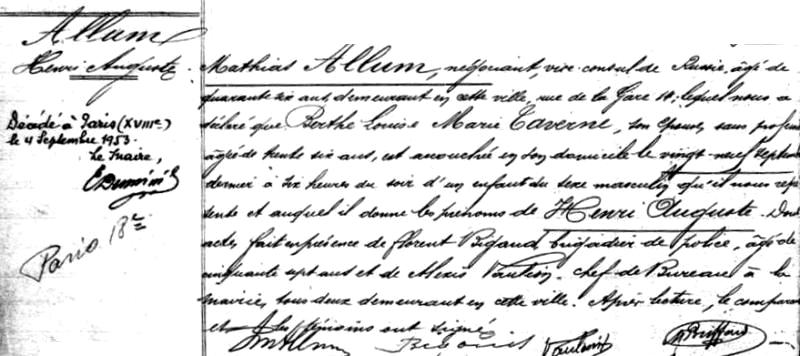 Allum
Henri Auguste
Décédé à Paris (XVIIIe)
le 4 Septembre 1953
Le Maire,
Paris 18e
Mathias Allum, négociant, vice-consul de Russie, âgé de
quarante six ans, demeurant en cette ville, rue de la Gare 10, lequel nous a
déclaré que Berthe Louise Marie Taverne, son épouse, sans profess
âgée de trente six ans, est accouchée en son domicile le vingt-neuf septem
dernier à six heures du soir d'un enfant du sexe masculin qu'il nous repré
sente et auquel il donne les prénoms de Henri Auguste. Dont
acte, fait en présence de Florent Bigaud, brigadier de police, âgé de
cinquante sept ans et de Alexis chef de Bureau à la
mairie, tous deux demeurant en cette ville. Après lecture, le comparant
et les témoins ont signé